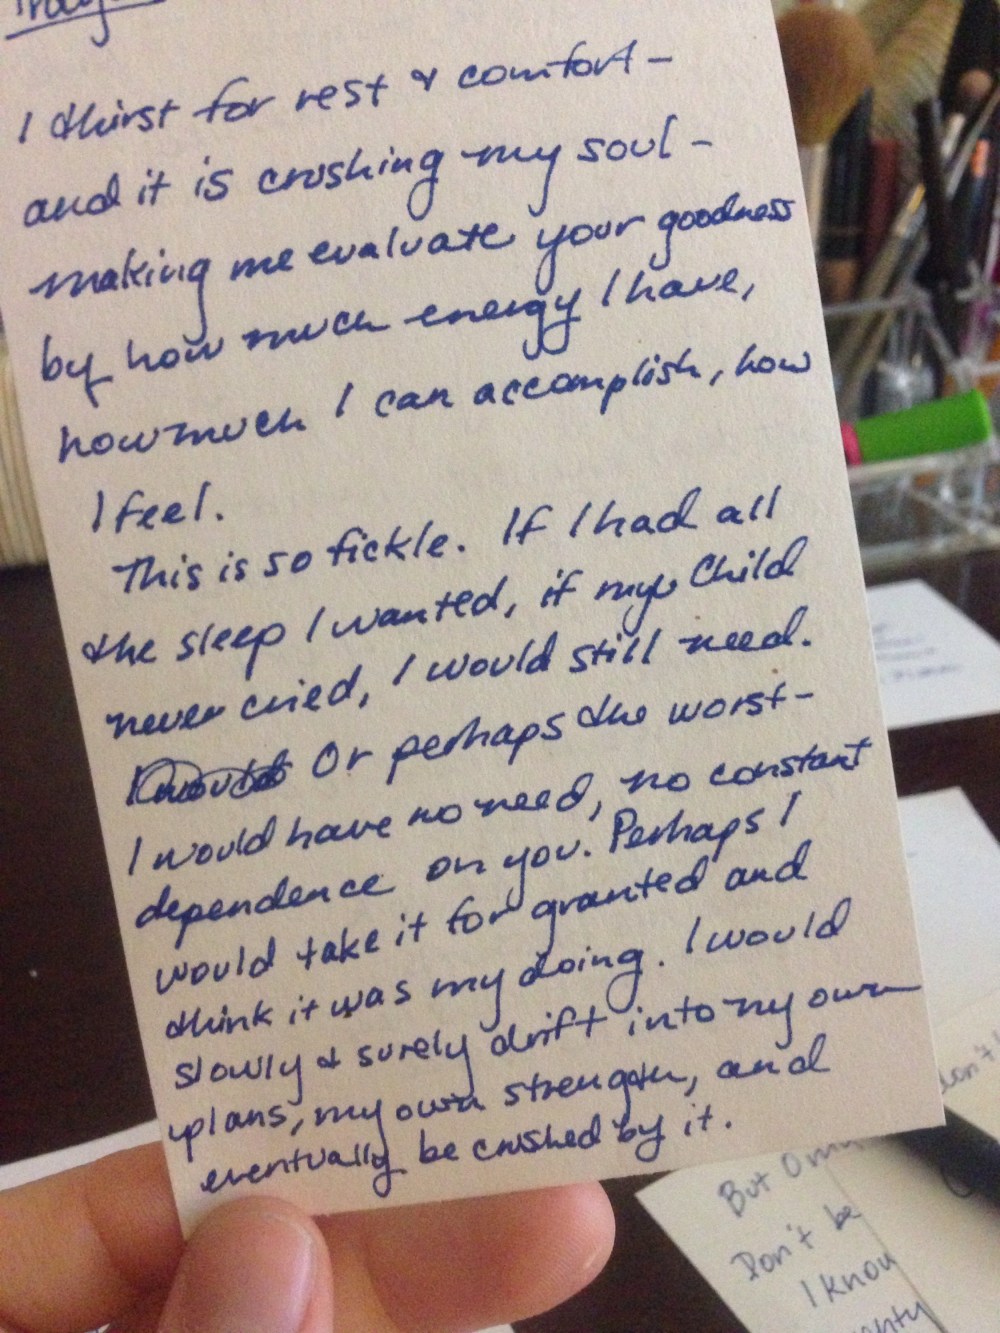 I thirst for rest & comfort –
and it is crushing my soul –
making me evaluate your goodness
by how much energy I have,
how much I can accomplish, how
I feel.
This is so fickle. If I had all
the sleep I wanted, if my child
never cried, I would still need.
Or perhaps the worst –
I would have no need, no constant
dependence on you. Perhaps I
would take it for granted and
think it was my doing. I would
slowly & surely drift into my own
plans, my own strength, and
eventually be crushed by it.
don't
But
Don't be
I know